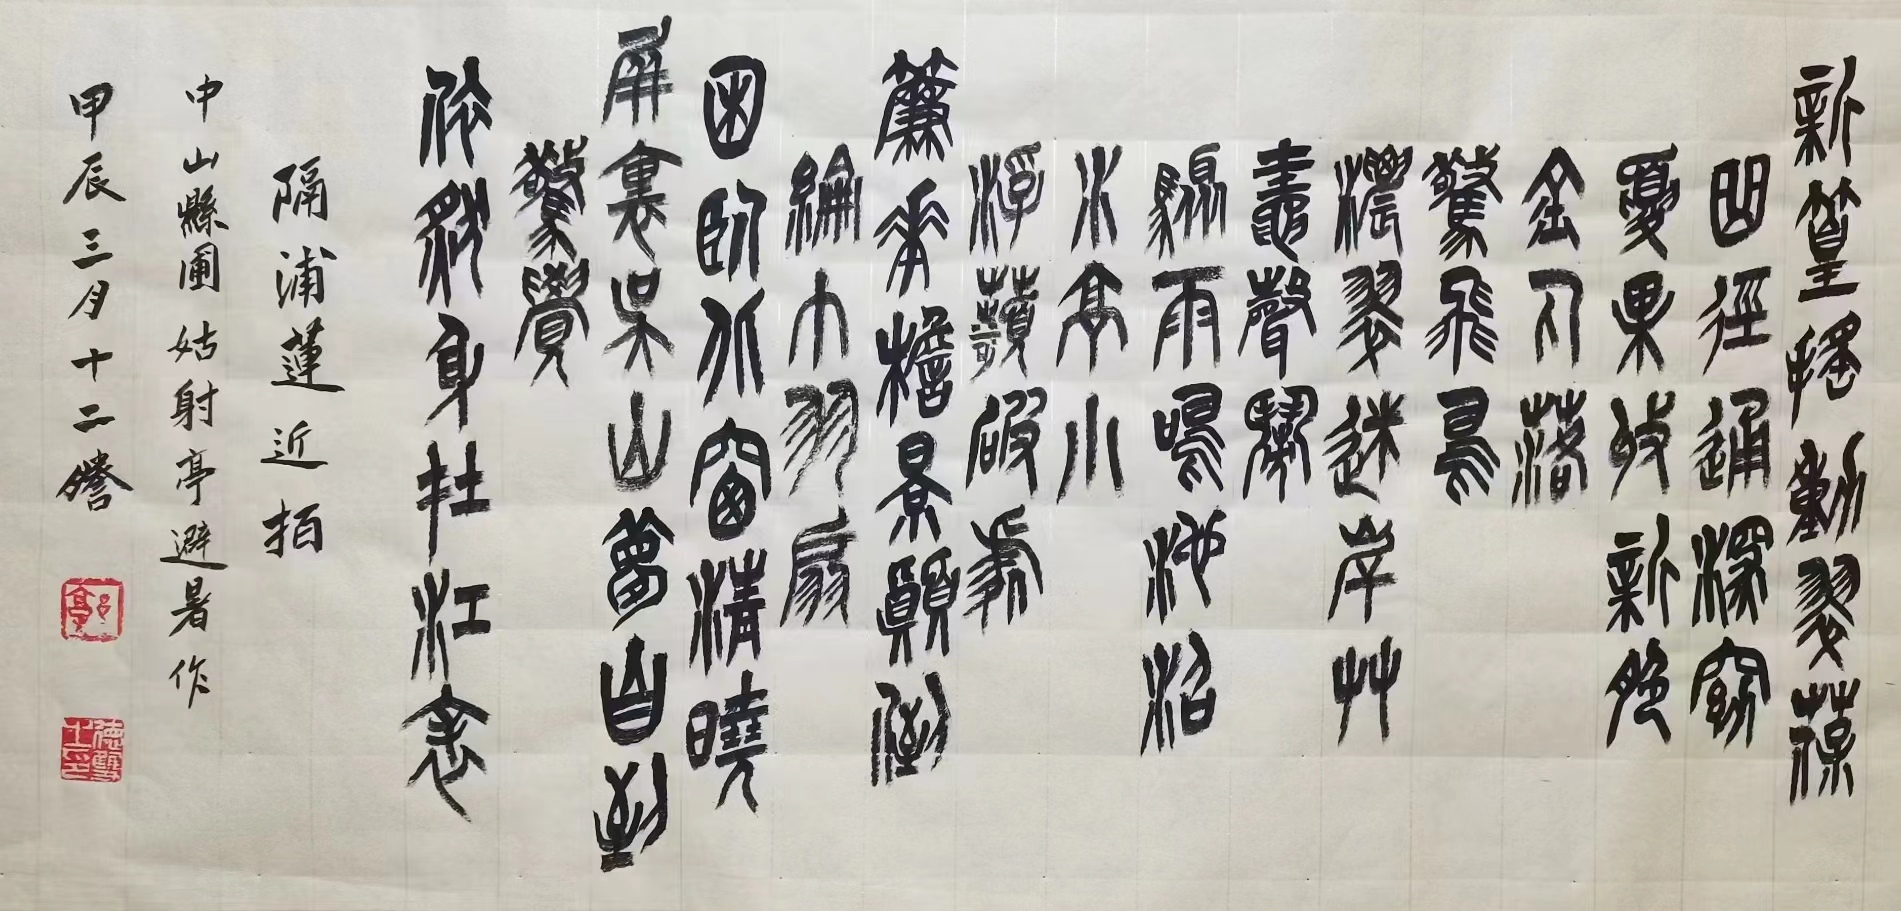 新篁搖動翠葆
曲徑通深窈
夏果收新脆
金丸落
驚飛鳥
濃翠迷岸艸
鼃聲鬧
驟雨鳴池沼
水亭小
浮蘋破處
簾花檐景顛倒
綸巾羽扇
困臥北窗清曉
屏裏吳山夢自到
驚覺
依然身在江表
隔浦蓮近拍
中山縣圃姑射亭避暑作
甲辰三月十二謄
郭